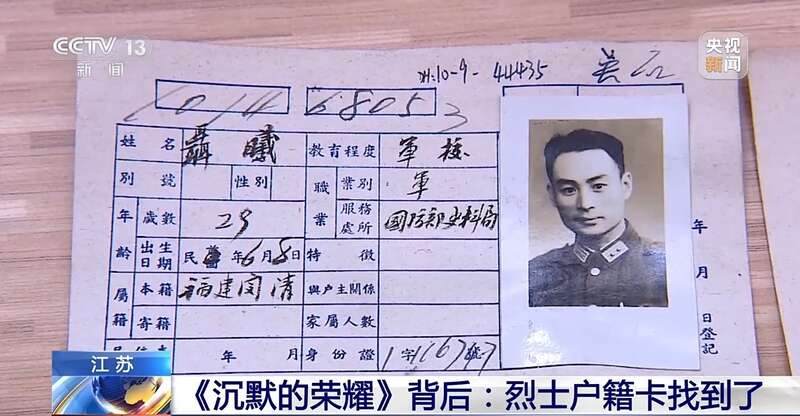 CCTV 13
新闻
央视
新闻
44435
1014 68053
姓名 聶曦 教育程度 軍校
別號 性別 職業 業別 軍
年齡 歲數 29 服務處所 國防部史料局
出生日期 民 年6月8日 特徵
屬籍 本籍 福建閩清 與户主關係
寄籍 家屬人數
年 月 身份證 字 號
年
月
日登記
江苏
《沉默的荣耀》背后：烈士户籍卡找到了